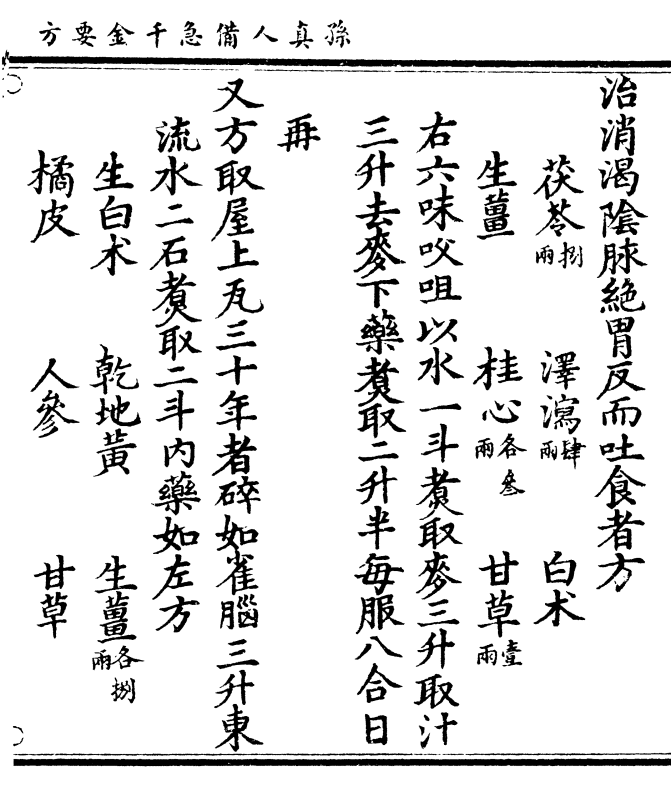 孫真人備急千金要方
治消渴陰脉絶胃反而吐食者方
茯苓捌兩 澤瀉肆兩 白术
生薑 桂心各叄兩 甘草壹兩
右六味咬咀以水一斗煑取麥三升取汁
三升去麥下藥煑取二升半每服八合日
再
又方取屋上瓦三十年者碎如雀腦三升東
流水二石煑取二斗内藥如左方
生白术 乾地黄 生薑各捌兩
橘皮 人參 甘草